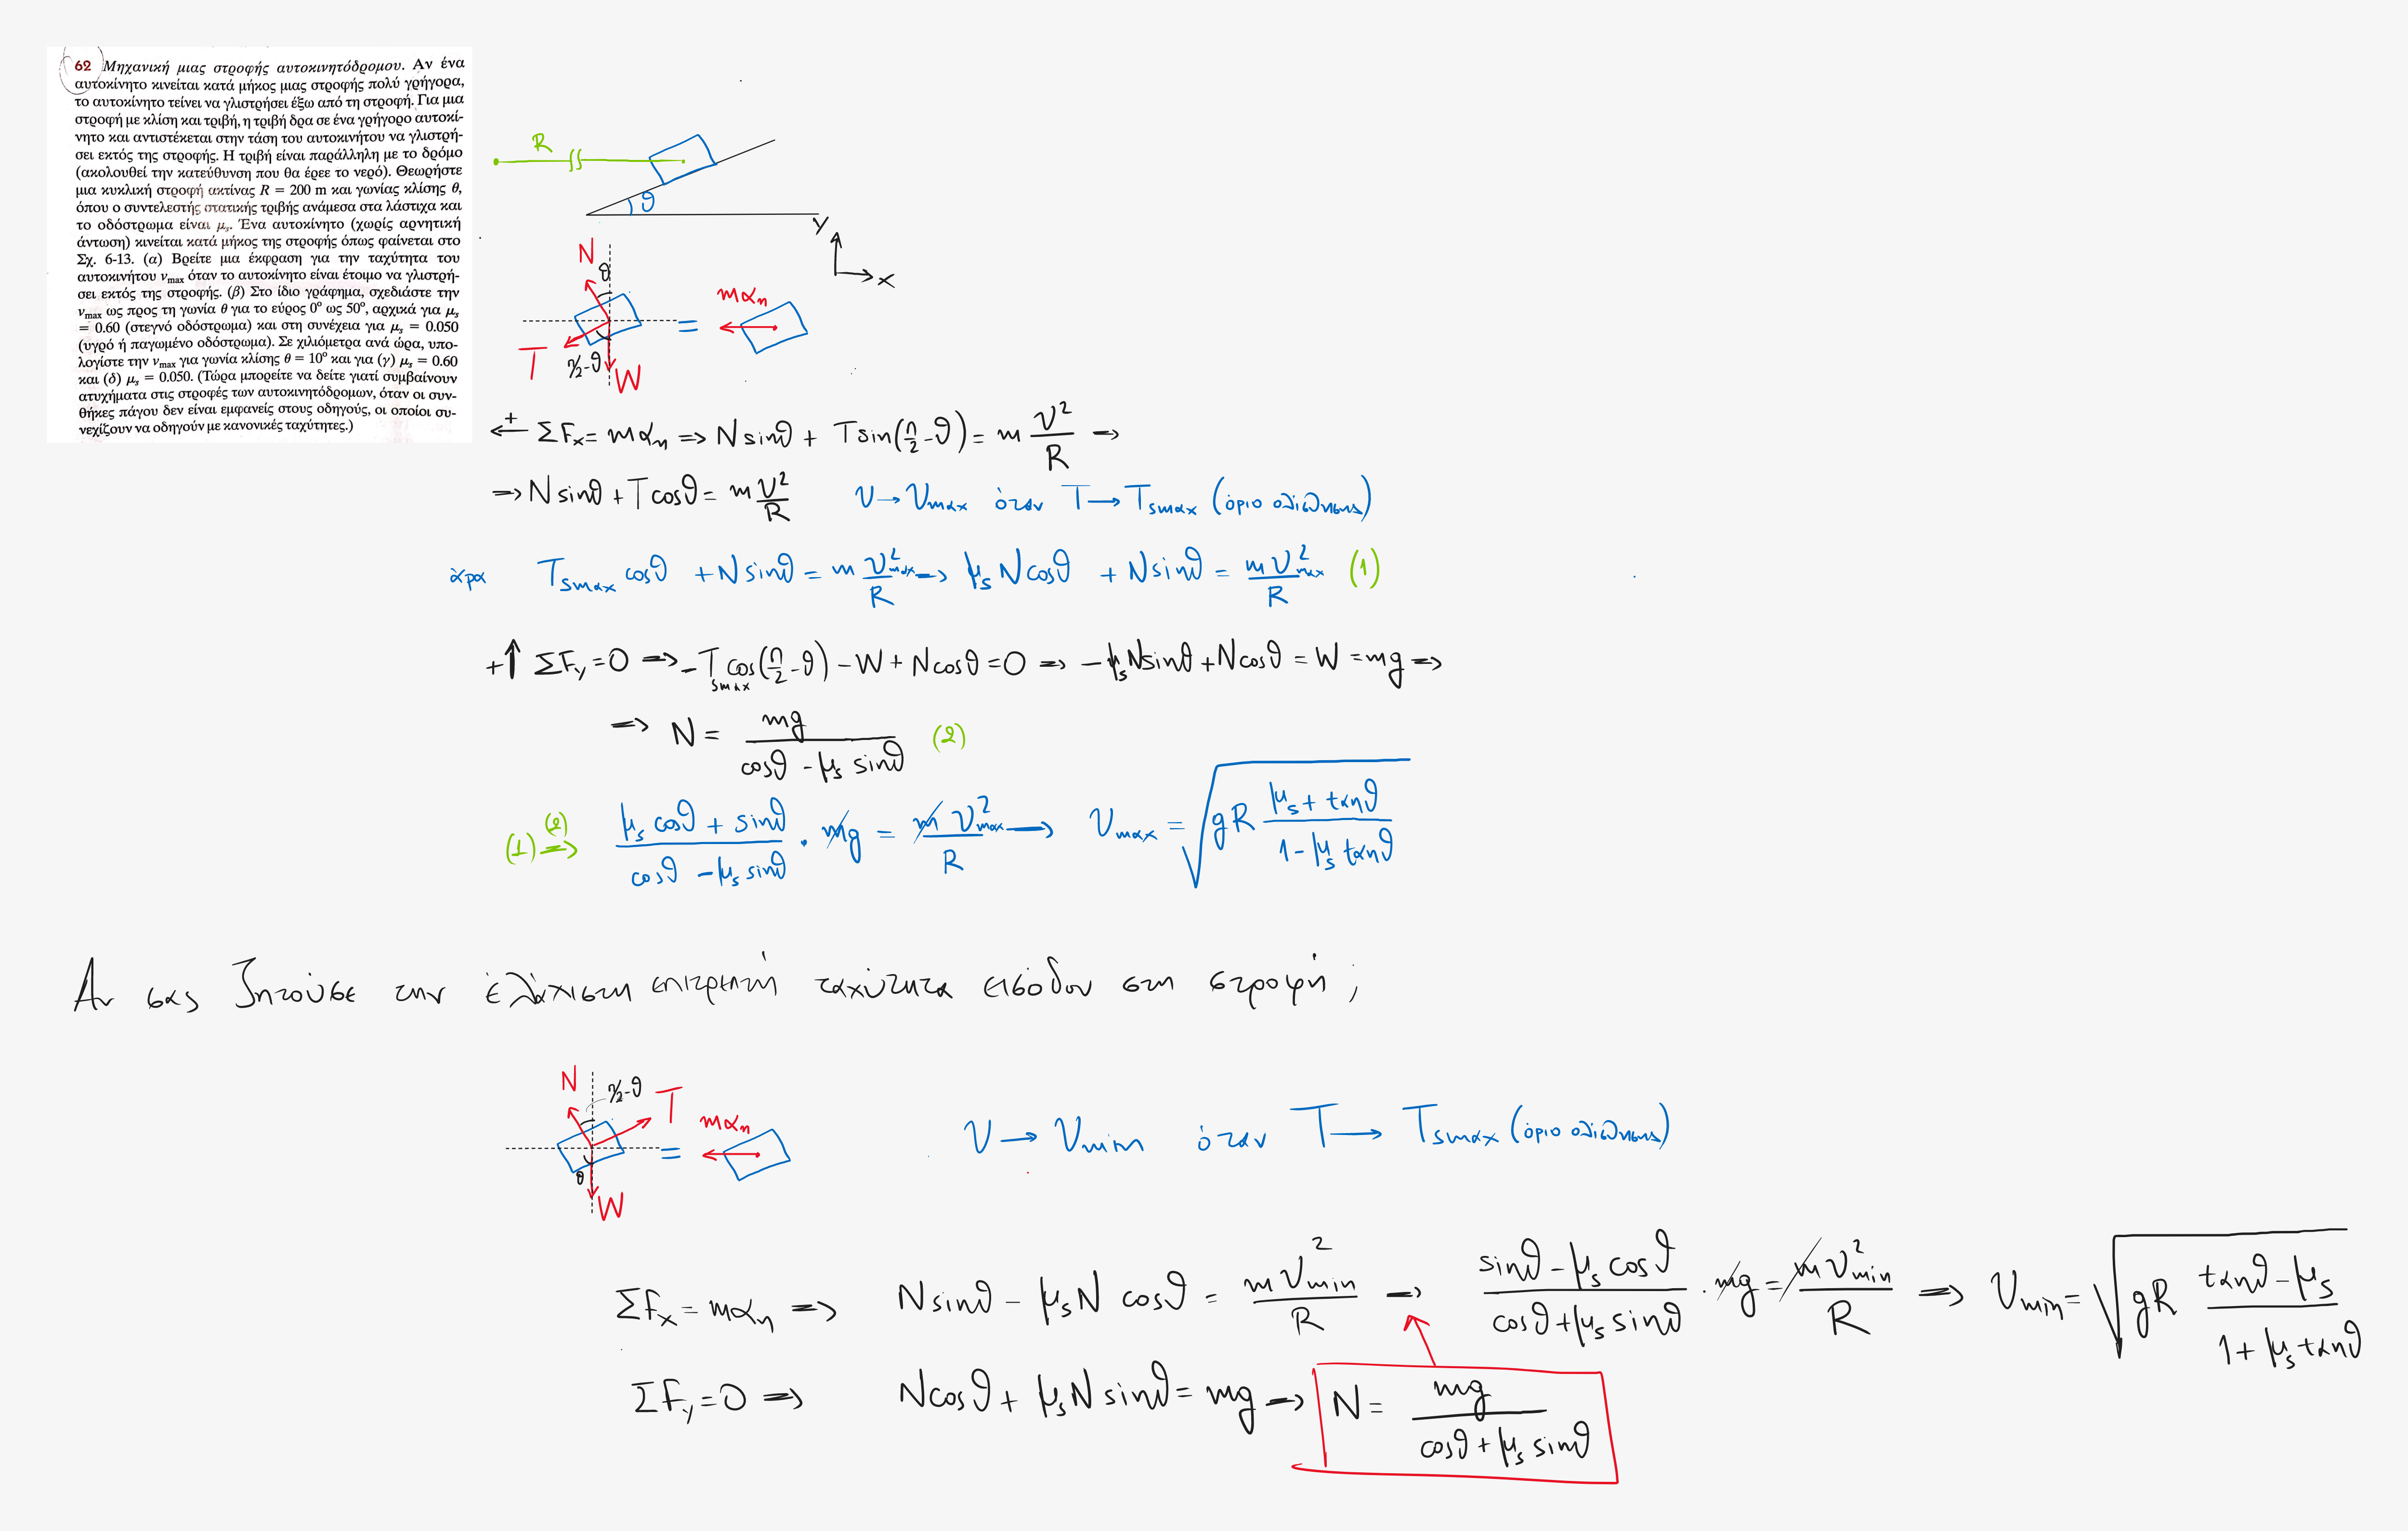 62 Μηχανική μιας στροφής αυτοκινητόδρομου. Αν ένα
αυτοκίνητο κινείται κατά μήκος μιας στροφής πολύ γρήγορα,
το αυτοκίνητο τείνει να γλιστρήσει έξω από τη στροφή. Για μια
στροφή με κλίση και τριβή, η τριβή δρα σε ένα γρήγορο αυτοκί-
νητο και αντιστέκεται στην τάση του αυτοκινήτου να γλιστρή-
σει εκτός της στροφής. Η τριβή είναι παράλληλη με το δρόμο
(ακολουθεί την κατεύθυνση που θα έρεε το νερό). Θεωρήστε
μια κυκλική στροφή ακτίνας R = 200 m και γωνίας κλίσης θ,
όπου ο συντελεστής στατικής τριβής ανάμεσα στα λάστιχα και
το οδόστρωμα είναι μₛ. Ένα αυτοκίνητο (χωρίς αρνητική
άντωση) κινείται κατά μήκος της στροφής όπως φαίνεται στο
Σχ. 6-13. (α) Βρείτε μια έκφραση για την ταχύτητα του
αυτοκινήτου v_max όταν το αυτοκίνητο είναι έτοιμο να γλιστρή-
σει εκτός της στροφής. (β) Στο ίδιο γράφημα, σχεδιάστε την
v_max ως προς τη γωνία θ για το εύρος 0° ως 50°, αρχικά για μₛ
= 0.60 (στεγνό οδόστρωμα) και στη συνέχεια για μₛ = 0.050
(υγρό ή παγωμένο οδόστρωμα). Σε χιλιόμετρα ανά ώρα, υπο-
λογίστε την v_max για γωνία κλίσης θ = 10° και για (γ) μₛ = 0.60
και (δ) μₛ = 0.050. (Τώρα μπορείτε να δείτε γιατί συμβαίνουν
ατυχήματα στις στροφές των αυτοκινητόδρομων, όταν οι συν-
θήκες πάγου δεν είναι εμφανείς στους οδηγούς, οι οποίοι συ-
νεχίζουν να οδηγούν με κανονικές ταχύτητες.)
R
θ
y
x
N
θ
T
π/2-θ
W
=
mαₙ
+ ΣFx = mαₙ ⇒ N sinθ + T sin(π/2 - θ) = m υ²/R →
⇒ N sinθ + T cosθ = m υ²/R υ → υmax όταν T → Tsmax (όριο ολίσθησης)
άρα Tsmax cosθ + N sinθ = m υ²max/R → μs N cosθ + N sinθ = m υ²max/R (1)
+↑ ΣFy = 0 ⇒ -Tsmax cos(π/2 - θ) - W + N cosθ = 0 ⇒ -μs N sinθ + N cosθ = W = mg ⇒
⇒ N = mg/(cosθ - μs sinθ) (2)
(1) (2)⇒ (μs cosθ + sinθ)/(cosθ - μs sinθ) · mg = m υ²max/R → υmax = √(gR (μs + tanθ)/(1 - μs tanθ))
Αν σας ζητούσε την ελάχιστη επιτρεπτή ταχύτητα εισόδου στη στροφή;
N
π/2-θ
T
θ
W
=
mαₙ
υ → υmin όταν T → Tsmax (όριο ολίσθησης)
ΣFx = mαₙ ⇒ N sinθ - μs N cosθ = m υ²min/R ⇒ (sinθ - μs cosθ)/(cosθ + μs sinθ) · mg = m υ²min/R ⇒ υmin = √(gR (tanθ - μs)/(1 + μs tanθ))
ΣFy = 0 ⇒ N cosθ + μs N sinθ = mg ⇒ N = mg/(cosθ + μs sinθ)